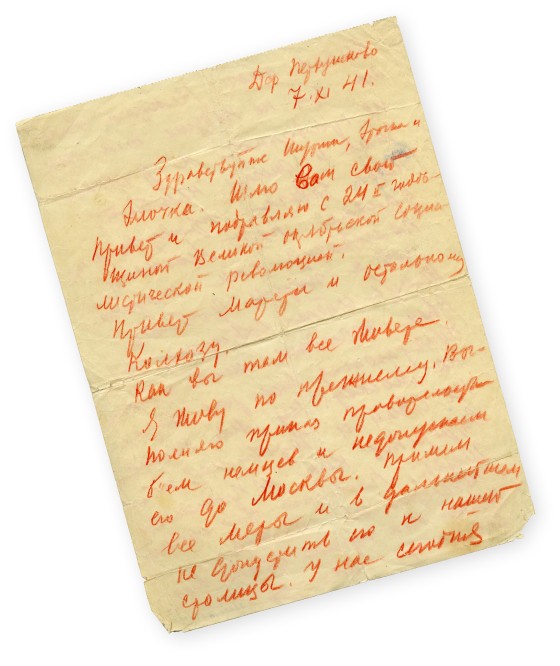 Дер Перхушково
7. XI 41.
Здравствуйте Шурочка, и
Элочка. Шлю Вам свой
привет и поздравляю с 24й годов-
щиной Великой октябрьской социа-
листической революцией.
Привет Марусе и остальному
Колхозу.
Как вы там все живете.
Я живу по прежнему, вы-
полняю приказ правительства
бъем немцев и недопускаем
его до Москвы. Примем
все меры и в дальнейшем
не допустить его к нашей
столицы. У нас сегодня